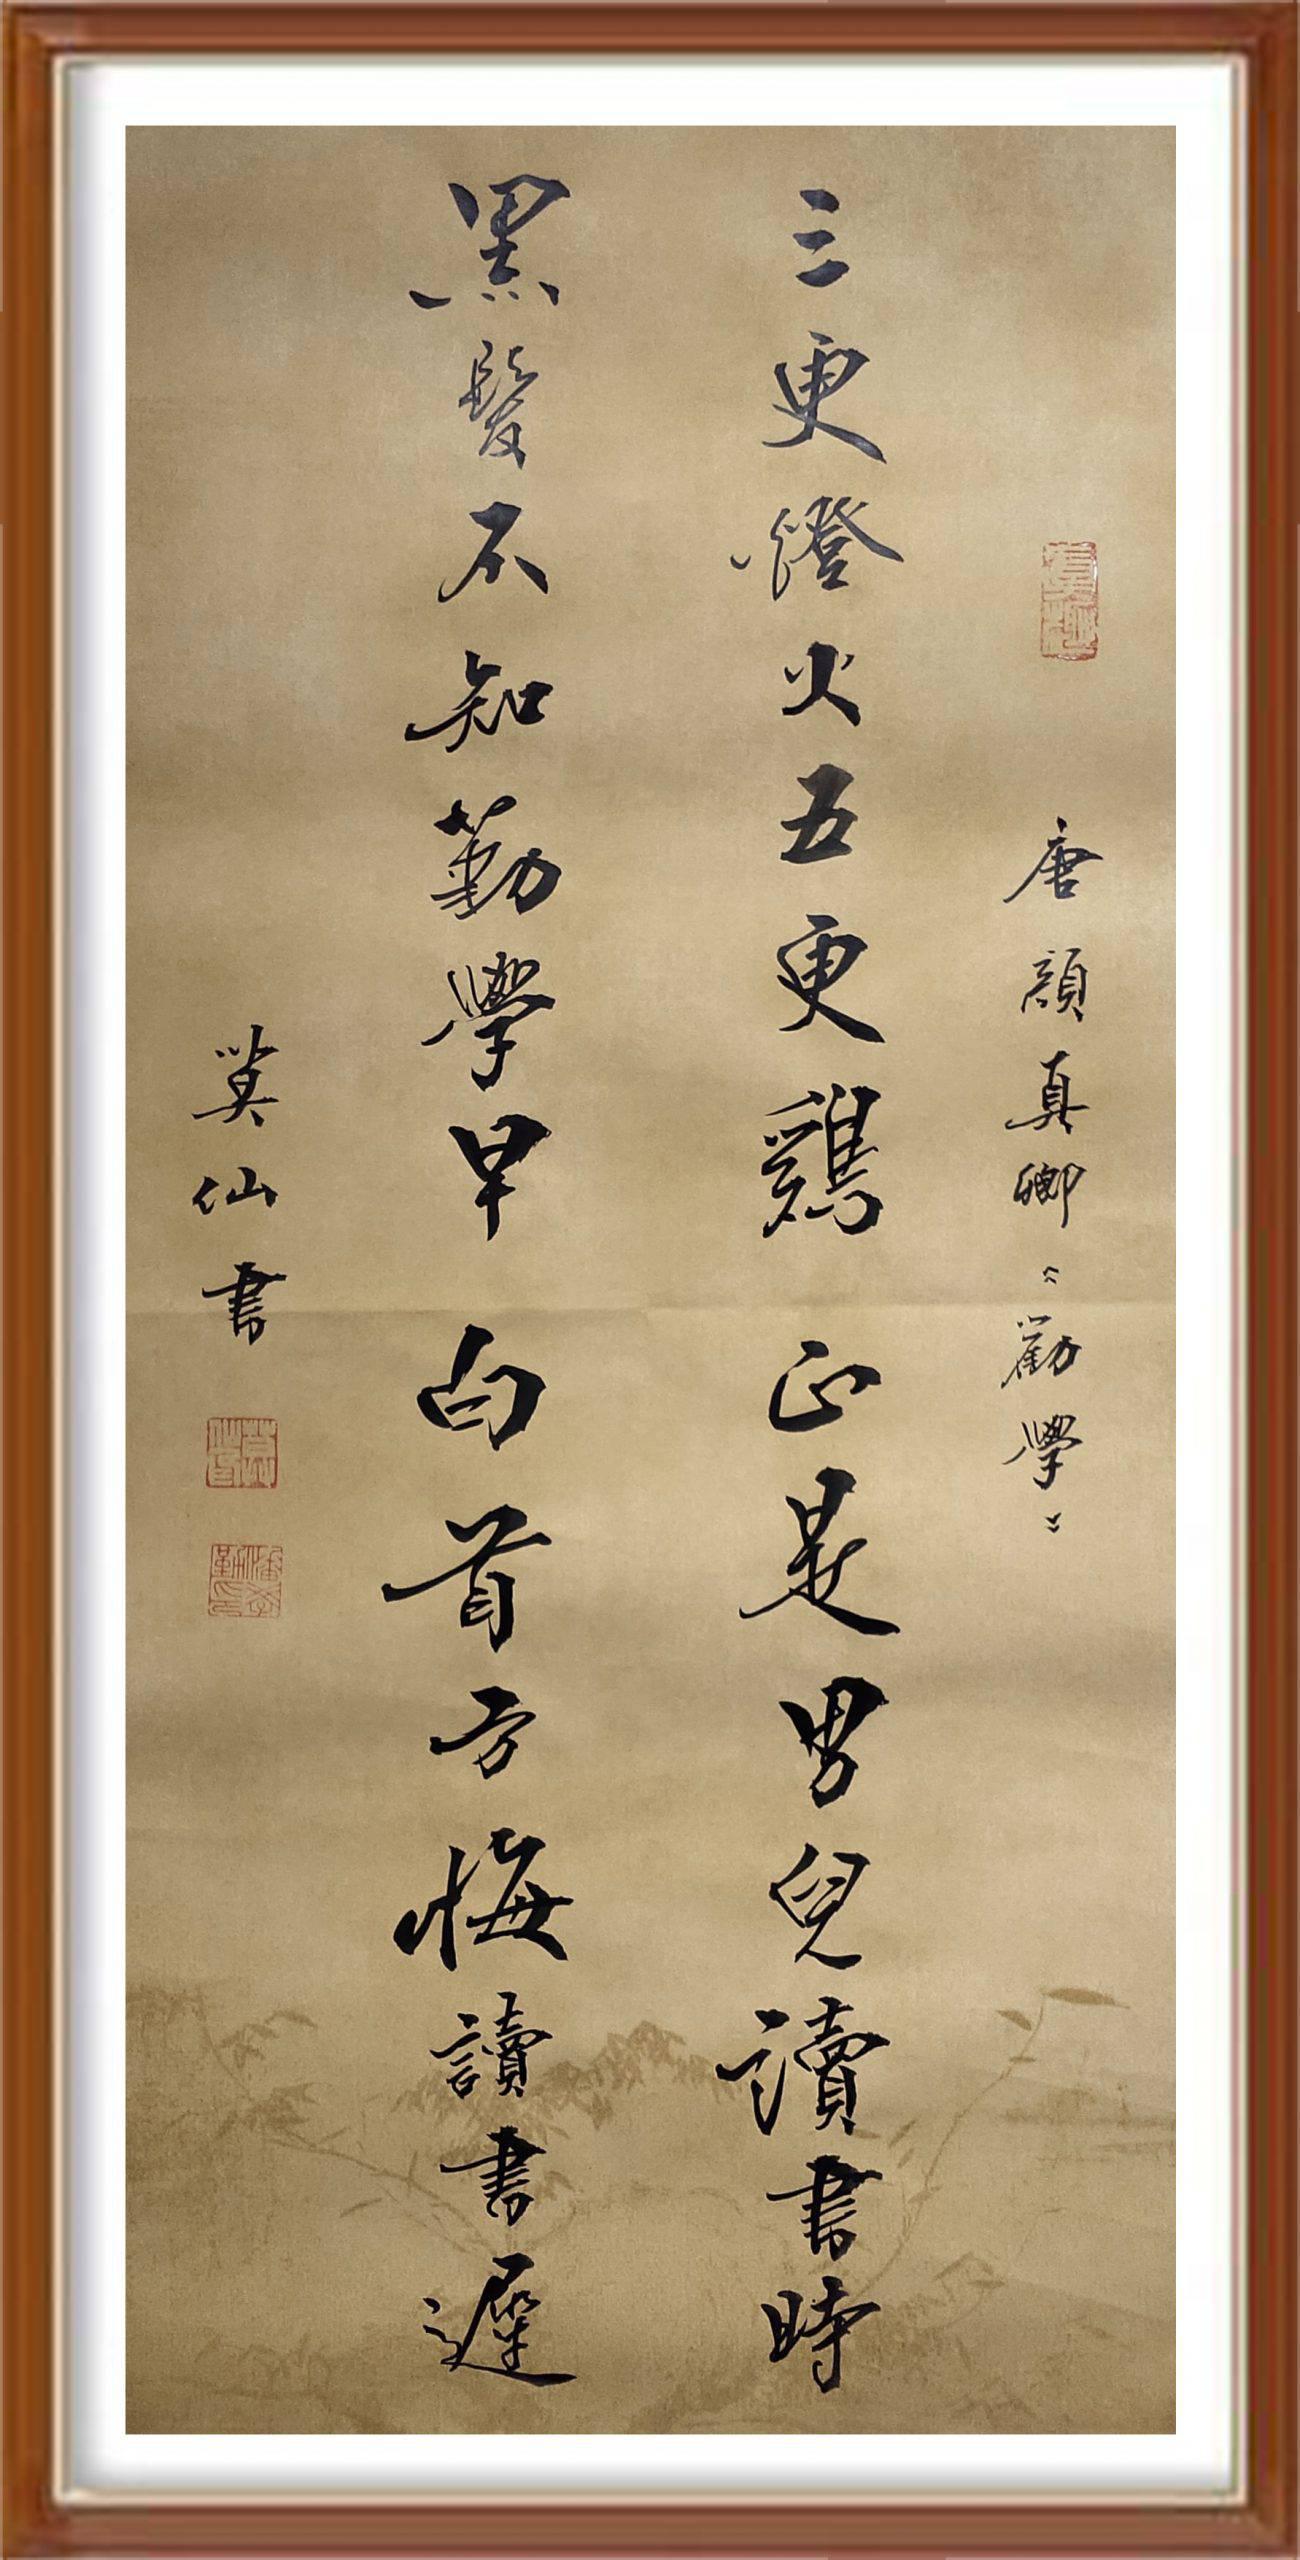 唐顔真卿《勸學》
三更燈火五更鷄正是男兒讀書時
黑髮不知勤學早白首方悔讀書遲
莫仙書